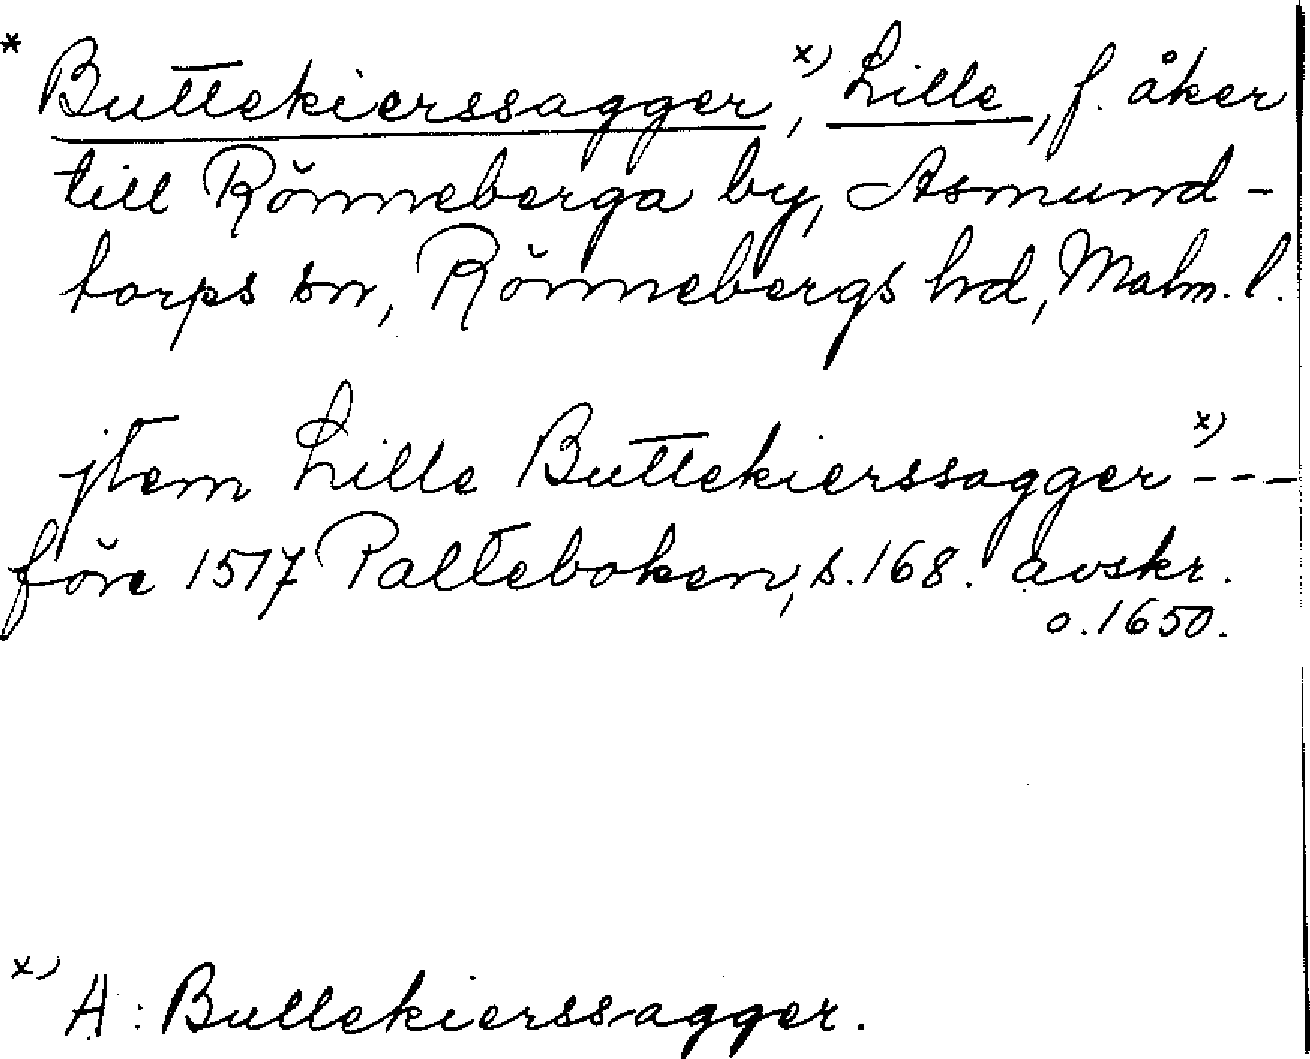 * Buttekierssagger,x) Lille, f. åker
till Rönneberga by, Asmund-
torps sn, Rönnebergs hd, Malm. l.
jtem Lille Buttekierssagger x) ---
före 1517 Palteboken, s. 168. avskr.
o. 1650.
x) A: Bullekierssagger.